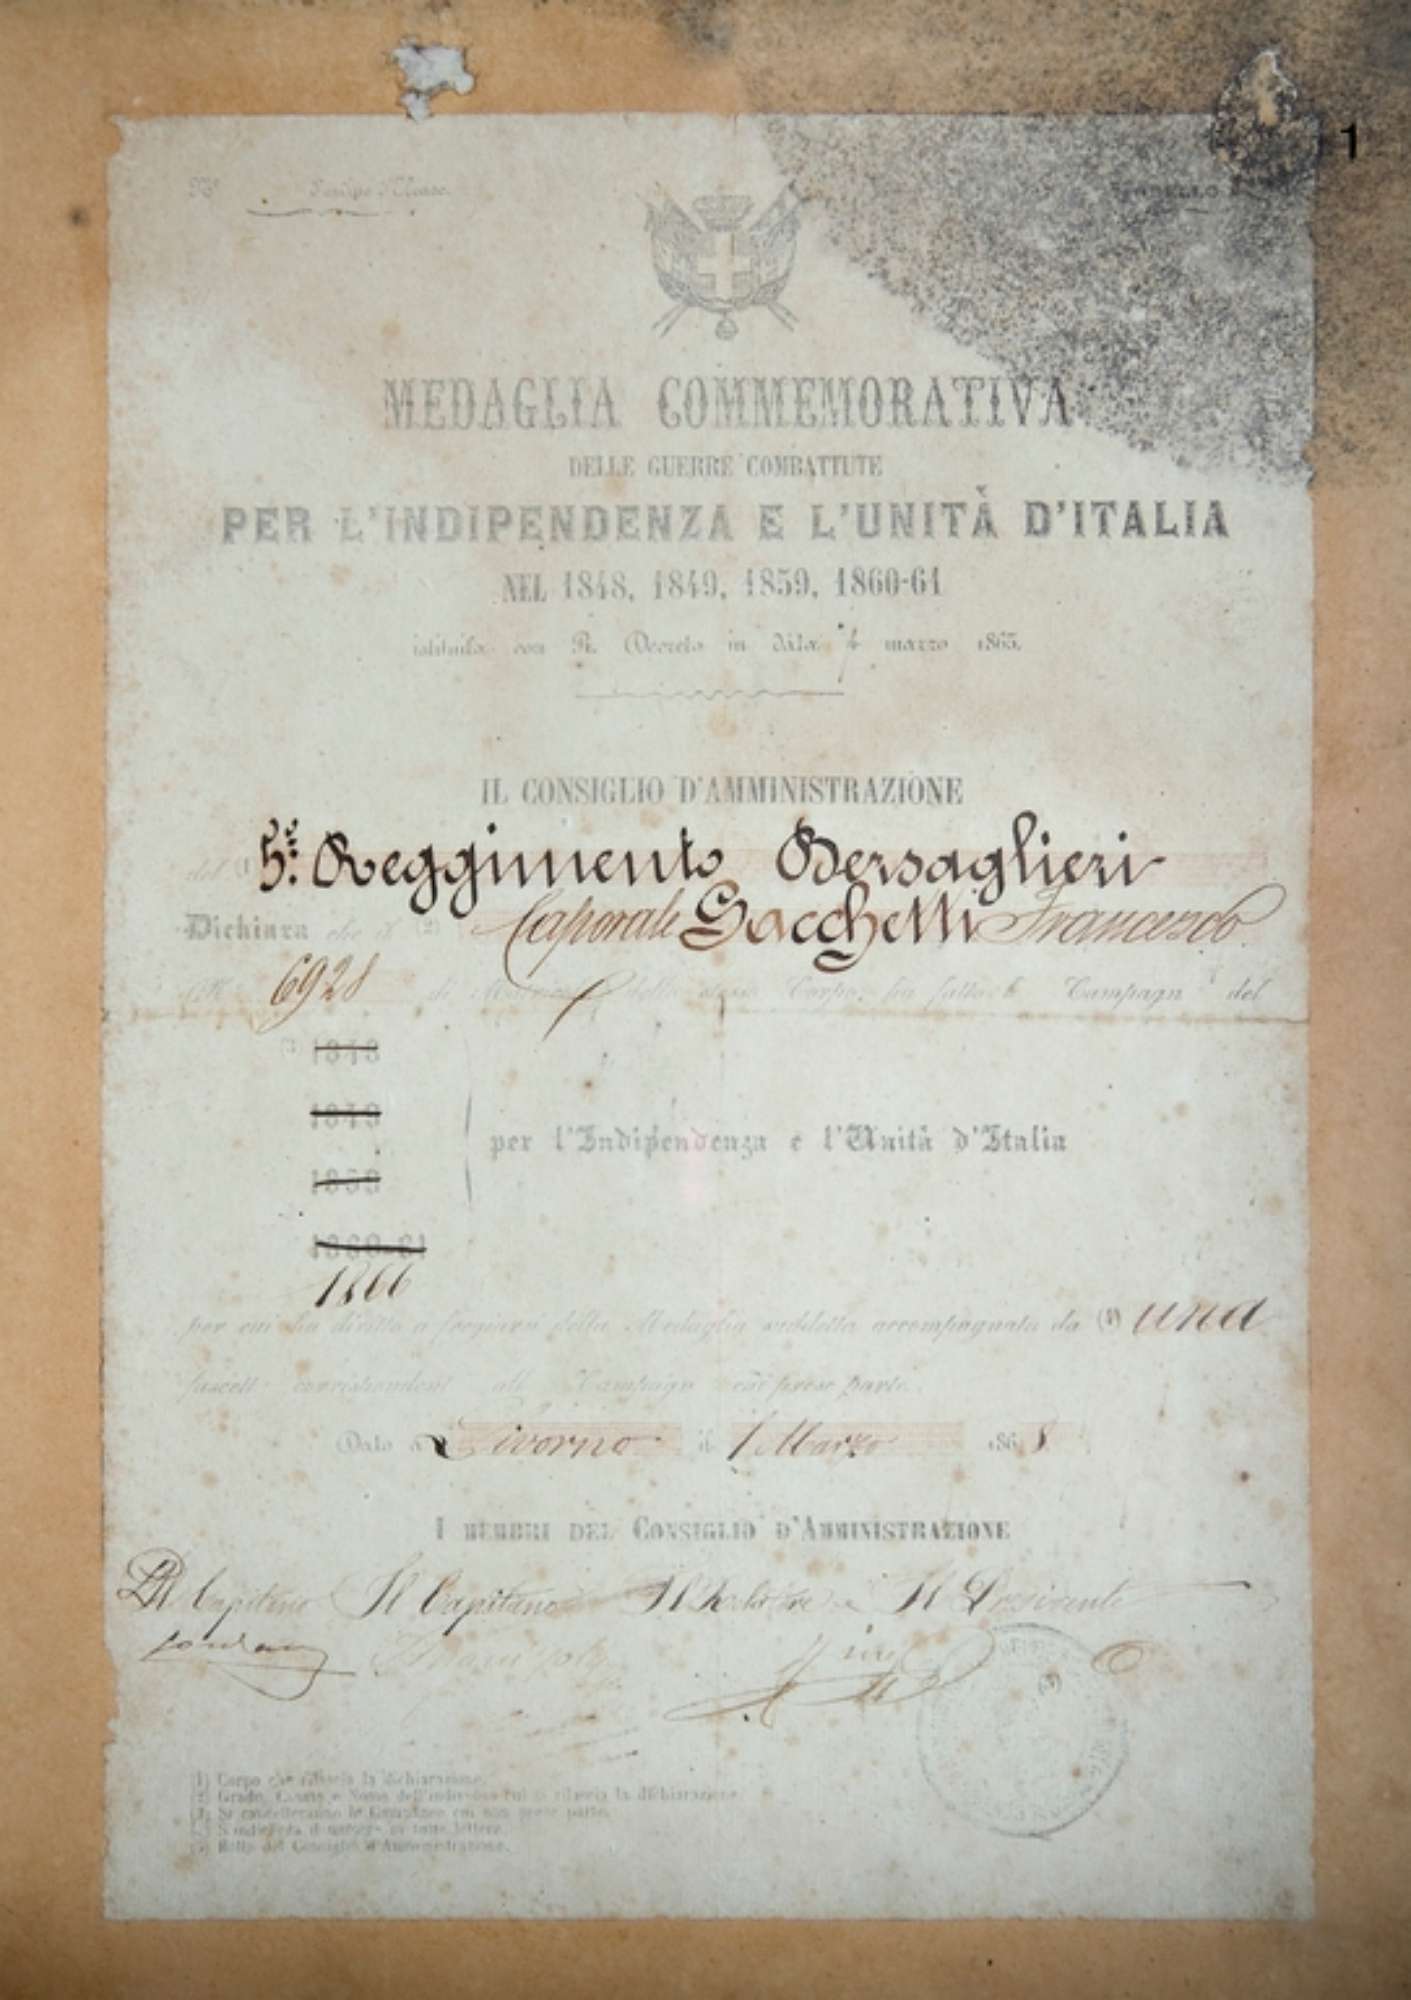 1
N°
MODELLO
MEDAGLIA COMMEMORATIVA
DELLE GUERRE COMBATTUTE
PER L'INDIPENDENZA E L'UNITÀ D'ITALIA
NEL 1848, 1849, 1859, 1860-61
istituita con R. Decreto in data 4 marzo 1865.
IL CONSIGLIO D'AMMINISTRAZIONE
del (1) 5.° Reggimento Bersaglieri
Dichiara che il (2) Caporale Sacchelli Francesco
N° 6928 di Matricola dello stesso Corpo, ha fatto le Campagn del
(3) 1848
1849
1859
1860-61
1866
per l'Indipendenza e l'Unità d'Italia
per cui ha diritto a fregiarsi della Medaglia suddetta accompagnata da (4) una
fascett corrispondent all Campagn cui prese parte.
Dato a Livorno il 1 Marzo 1868
I MEMBRI DEL CONSIGLIO D'AMMINISTRAZIONE
Il Capitano Il Capitano Il Relatore Il Presidente
(5)
(1) Corpo che rilascia la dichiarazione.
(2) Grado, Casato e Nome dell'individuo cui si rilascia la dichiarazione.
(3) Si cancelleranno le Campagne cui non prese parte.
(4) S'indicherà il numero in tutte lettere.
(5) Bollo del Consiglio d'Amministrazione.